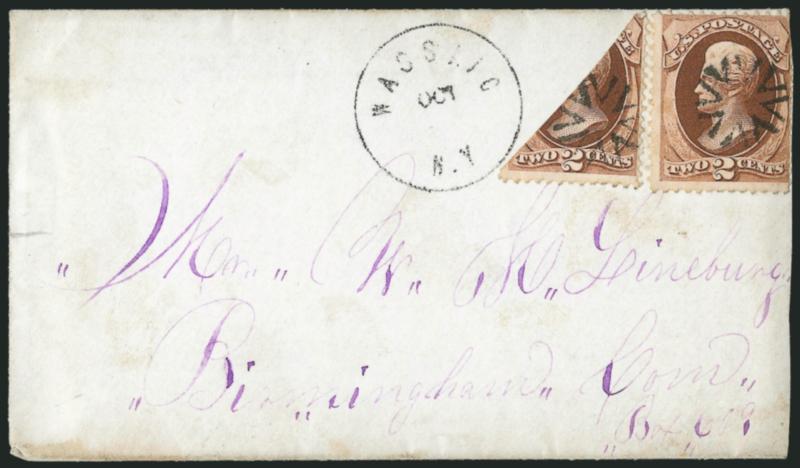 WASSAIC
OCT
N.Y
TWO 2 CENTS
U.S. POSTAGE
TWO 2 CENTS
„ Mr. „ W. H„ Lineburg
„ Birmingham„ Conn„
„Box„